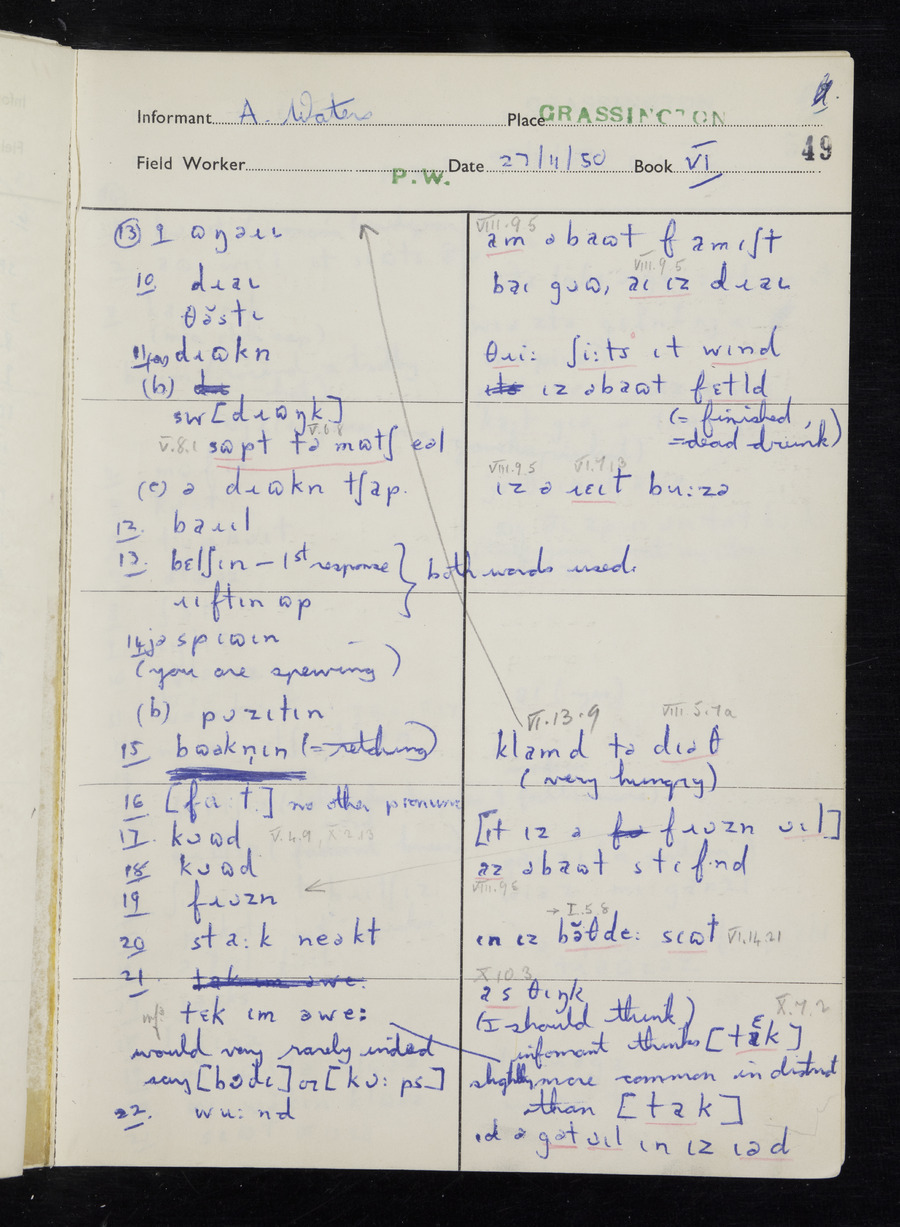 Informant A. Waters Place GRASSINGTON
49
Field Worker P.W. Date 27/11/50 Book VI
⑬ 9 ɷŋəɹɩ
10 dɹaɩ
θə̆stɩ
11 (a) dɹɷkn
(b)
sw [dɹɷŋk]
V.6.8
V.8.1 sɷpt tə mɷtʃ eəl
(c) ə dɹɷkn tʃap.
12. baɹɩl
13. bɛlʃɩn – 1st response } both words used.
ɹɩftɩn ɷp
14 jə spɩɷɩn
(you are spewing)
(b) pʊzɩtɩn
15 bɷəkn̩ɩn (= retching)
16 [fa:t.] no other pronunc
17. kʊɷd V.4.9, X.2.13
18 kʊɷd
19 fɹʊzn
20 sta:k neəkt
21
tɛk ɩm əwe:
would very rarely indeed
say [bɷdɩ] or [kɔ:ps]
22. wu:nd
VIII.9.5
am əbaɷt famɩʃt
VIII.9.5
baɩ guɷ, aɩ ɩz dɹaɩ
θɹi: ʃi:ts ɩt wɩnd
ɩz əbaɷt fɛtld
(= finished,
= dead drunk)
VIII.9.5 VI.7.13
ɩz ə ɹɛɩt bu:zə
VI.13.9 VIII.5.7a
klamd tə dɩəθ
(very hungry)
[ɩt ɩz ə fɹʊzn ʊɩl]
az əbaɷt stɩf.nd
VIII.9.5
→ I.5.8
ɩn ɩz bə̆θde: sɩɷt VI.14.21
X.10.3
as θɩŋk
(I should think) X.7.2
informant thinks [tɛk]
slightly more common in district
than [tak]
ɩd ə gət ʊɩl ɩn ɩz ɩəd